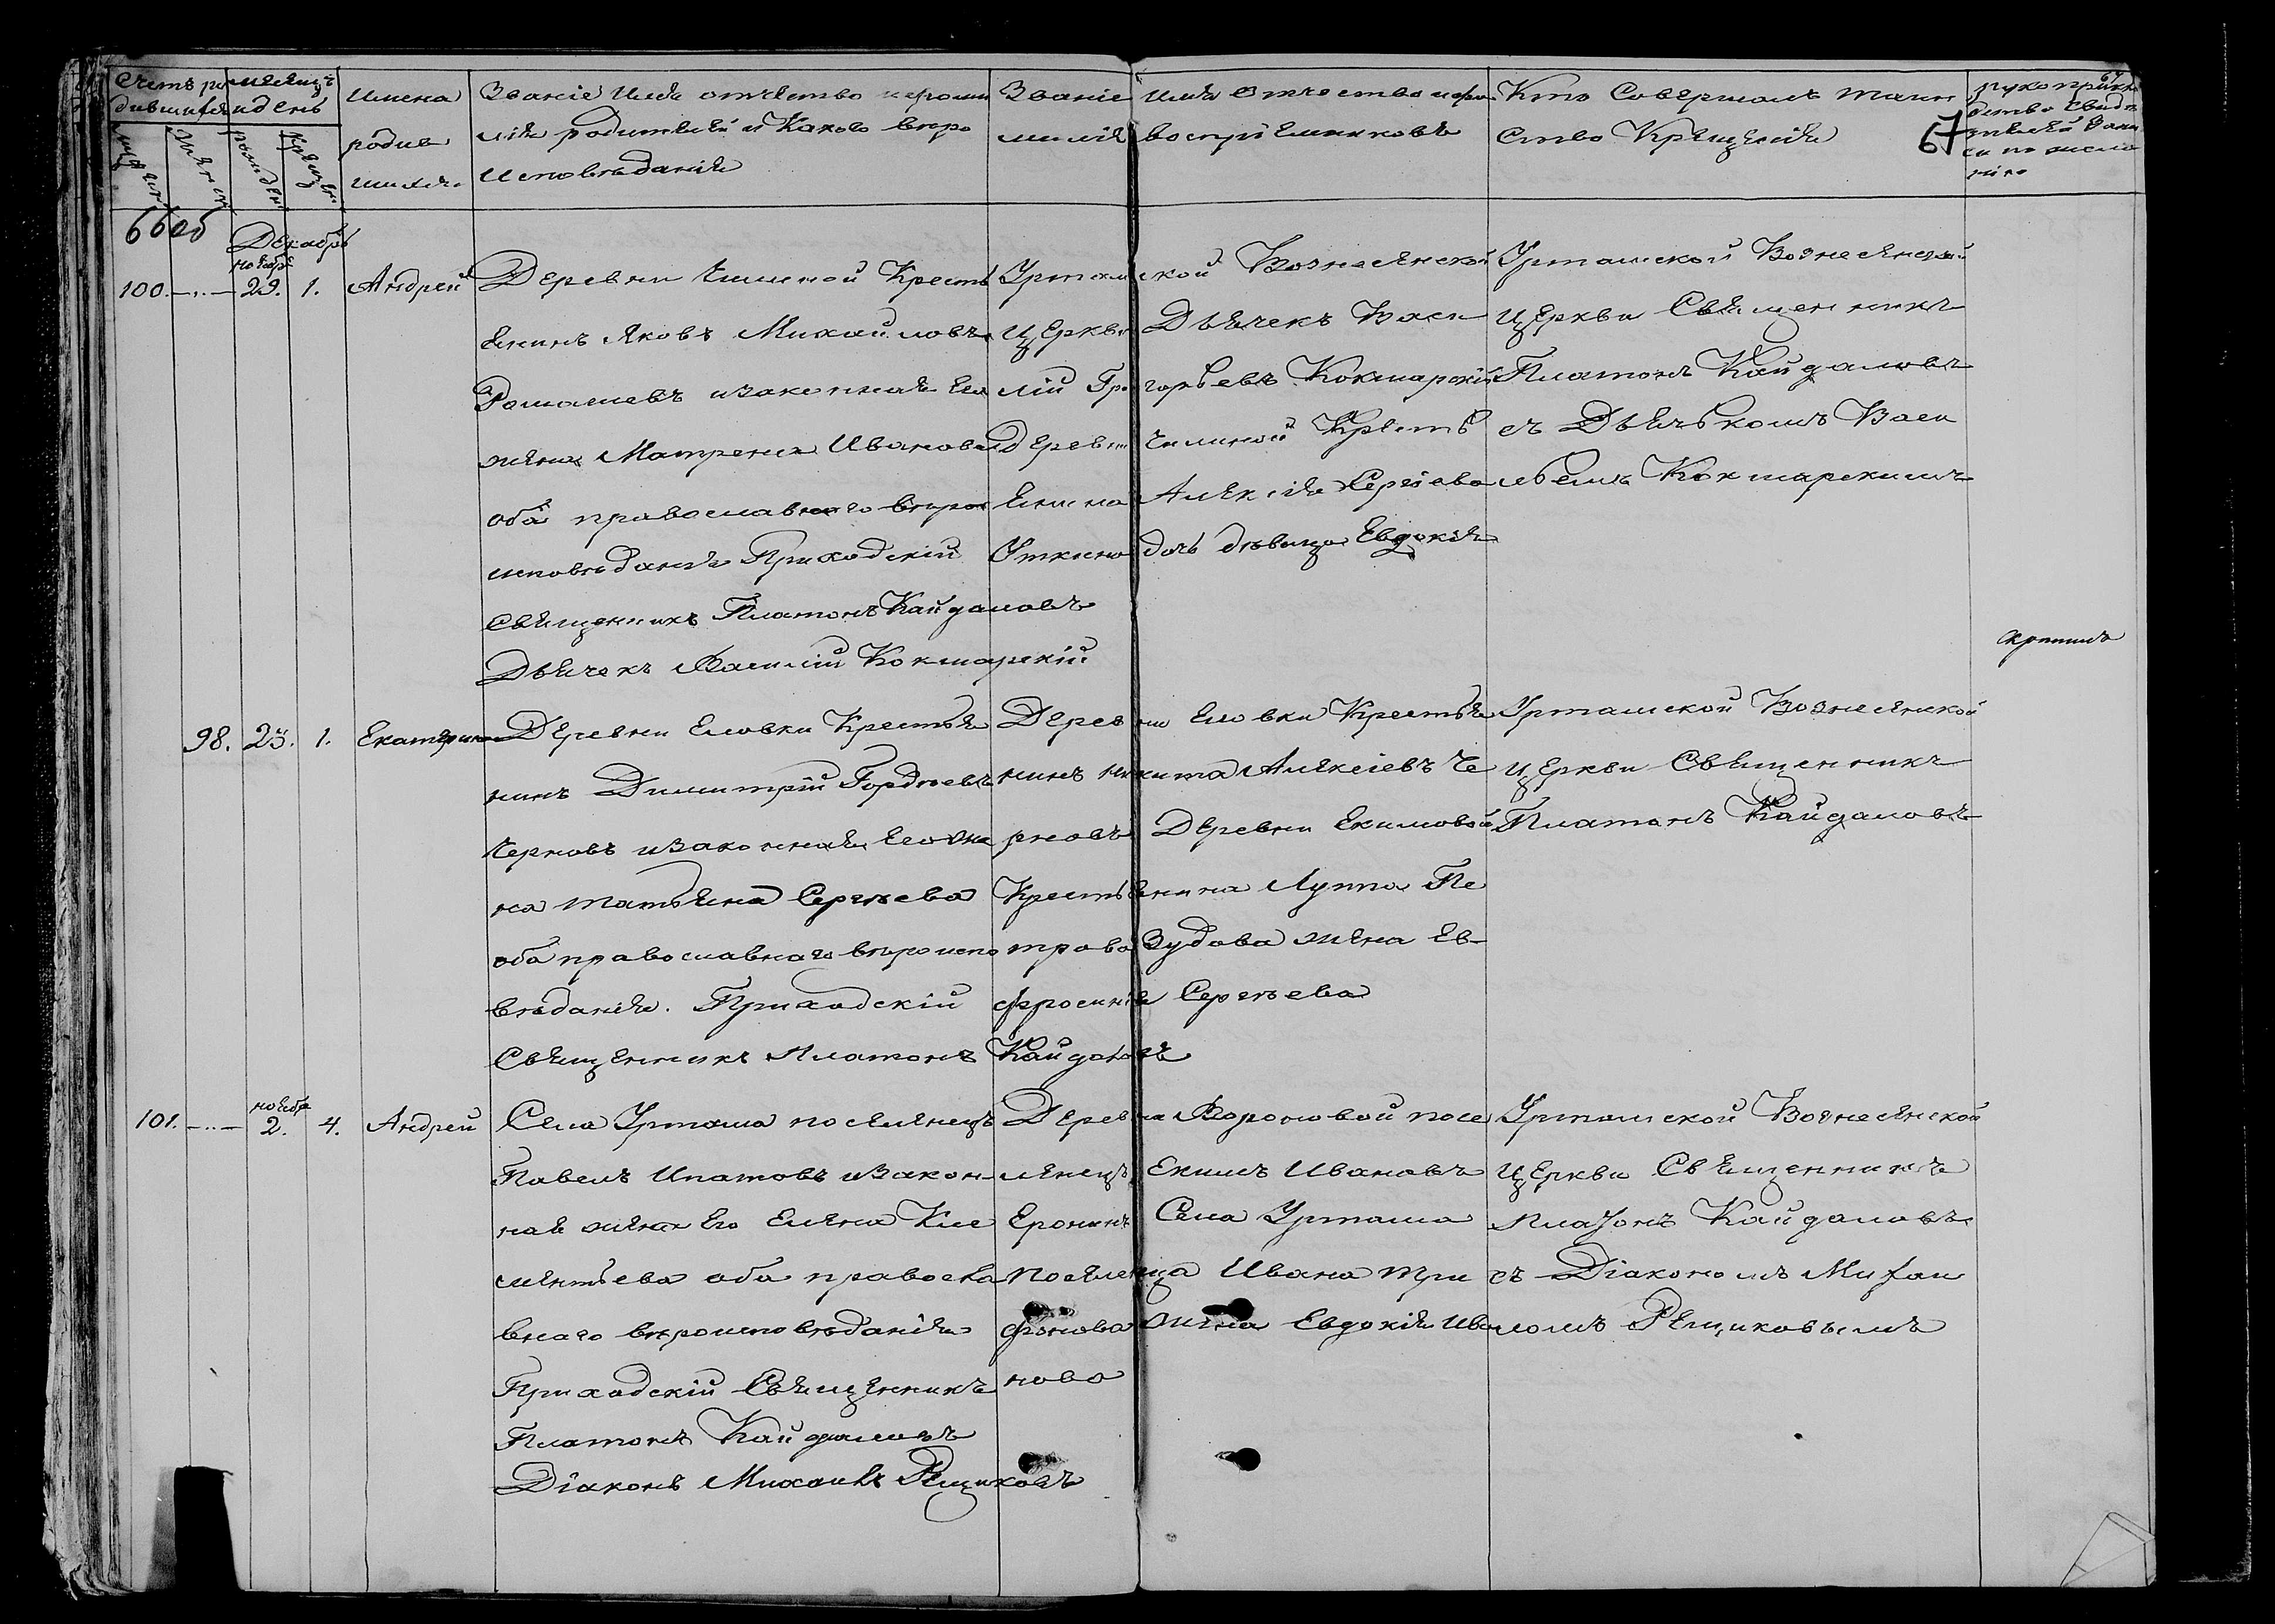 Счетъ ро месяцъ
дившихся и день
Имена
родив
шихся
Званіе имя отчество и фами
лія родителей и Какого веро
исповѣданія
Званіе имя отчество и фа
милія воспріемниковъ
Кто Совершалъ таин
ство Крещенія
67
рукоприкла
дство свидѣ
телей запи
си по жела
нію
66об
Декабрь
ноябр
100. 29. 1. Андрей
Деревни Крестъ
янинъ Яковъ Михайловъ
Ромашевъ изаконная Его
жена Матрена Иванова
оба православнаго вѣро
исповѣданія Приходскій
Священникъ Платонъ Кайдаловъ
Дьячекъ Василій Кокшарскій
Уртамской Вознесенской
Церкви Дьячекъ Васи
лій Григорьевъ Кокшарскій
Деревни Крестъ
янина Алексія Сергіева
Уткина дочь дѣвица Евдокія
Уртамской Вознесенской
Церкви Священникъ
Платонъ Кайдаловъ
съ Дьячькомъ Васи
льемъ Кокшарскимъ
скрепилъ
98. 23. 1. Екатерина
Деревни Еловки Крестья
нинъ Димитрій Гордѣевъ
Черновъ изаконная Его же
на Татьяна Сергѣева
оба православнаго вѣроиспо
вѣданія. Приходскій
Священникъ Платонъ Кайдаловъ
Деревни Еловки Крестья
нинъ Никита Алексіевъ Че
рновъ Деревни Екимовой
Крестьянина Луппа Пе
трова Зудова жена Ев-
фросинія Сергѣева
Уртамской Вознесенской
Церкви Священникъ
Платонъ Кайдаловъ
ноябр
101. 2. 4. Андрей
Села Уртама поселенецъ
Павелъ Ипатовъ изакон-
ная жена Его Елена Кле
ментьева оба правосла
внаго вѣроисповѣданія
Приходскій Священникъ
Платонъ Кайдаловъ
Діаконъ Михаилъ Рещиковъ
Деревни Вороновой посе
ленецъ Екимъ Ивановъ
Еронинъ Села Уртама
поселенца Ивана Три
фонова жена Евдокія Ива
нова
Уртамской Вознесенской
Церкви Священникъ
Платонъ Кайдаловъ
съ Діакономъ Михаи
ломъ Рещиковымъ